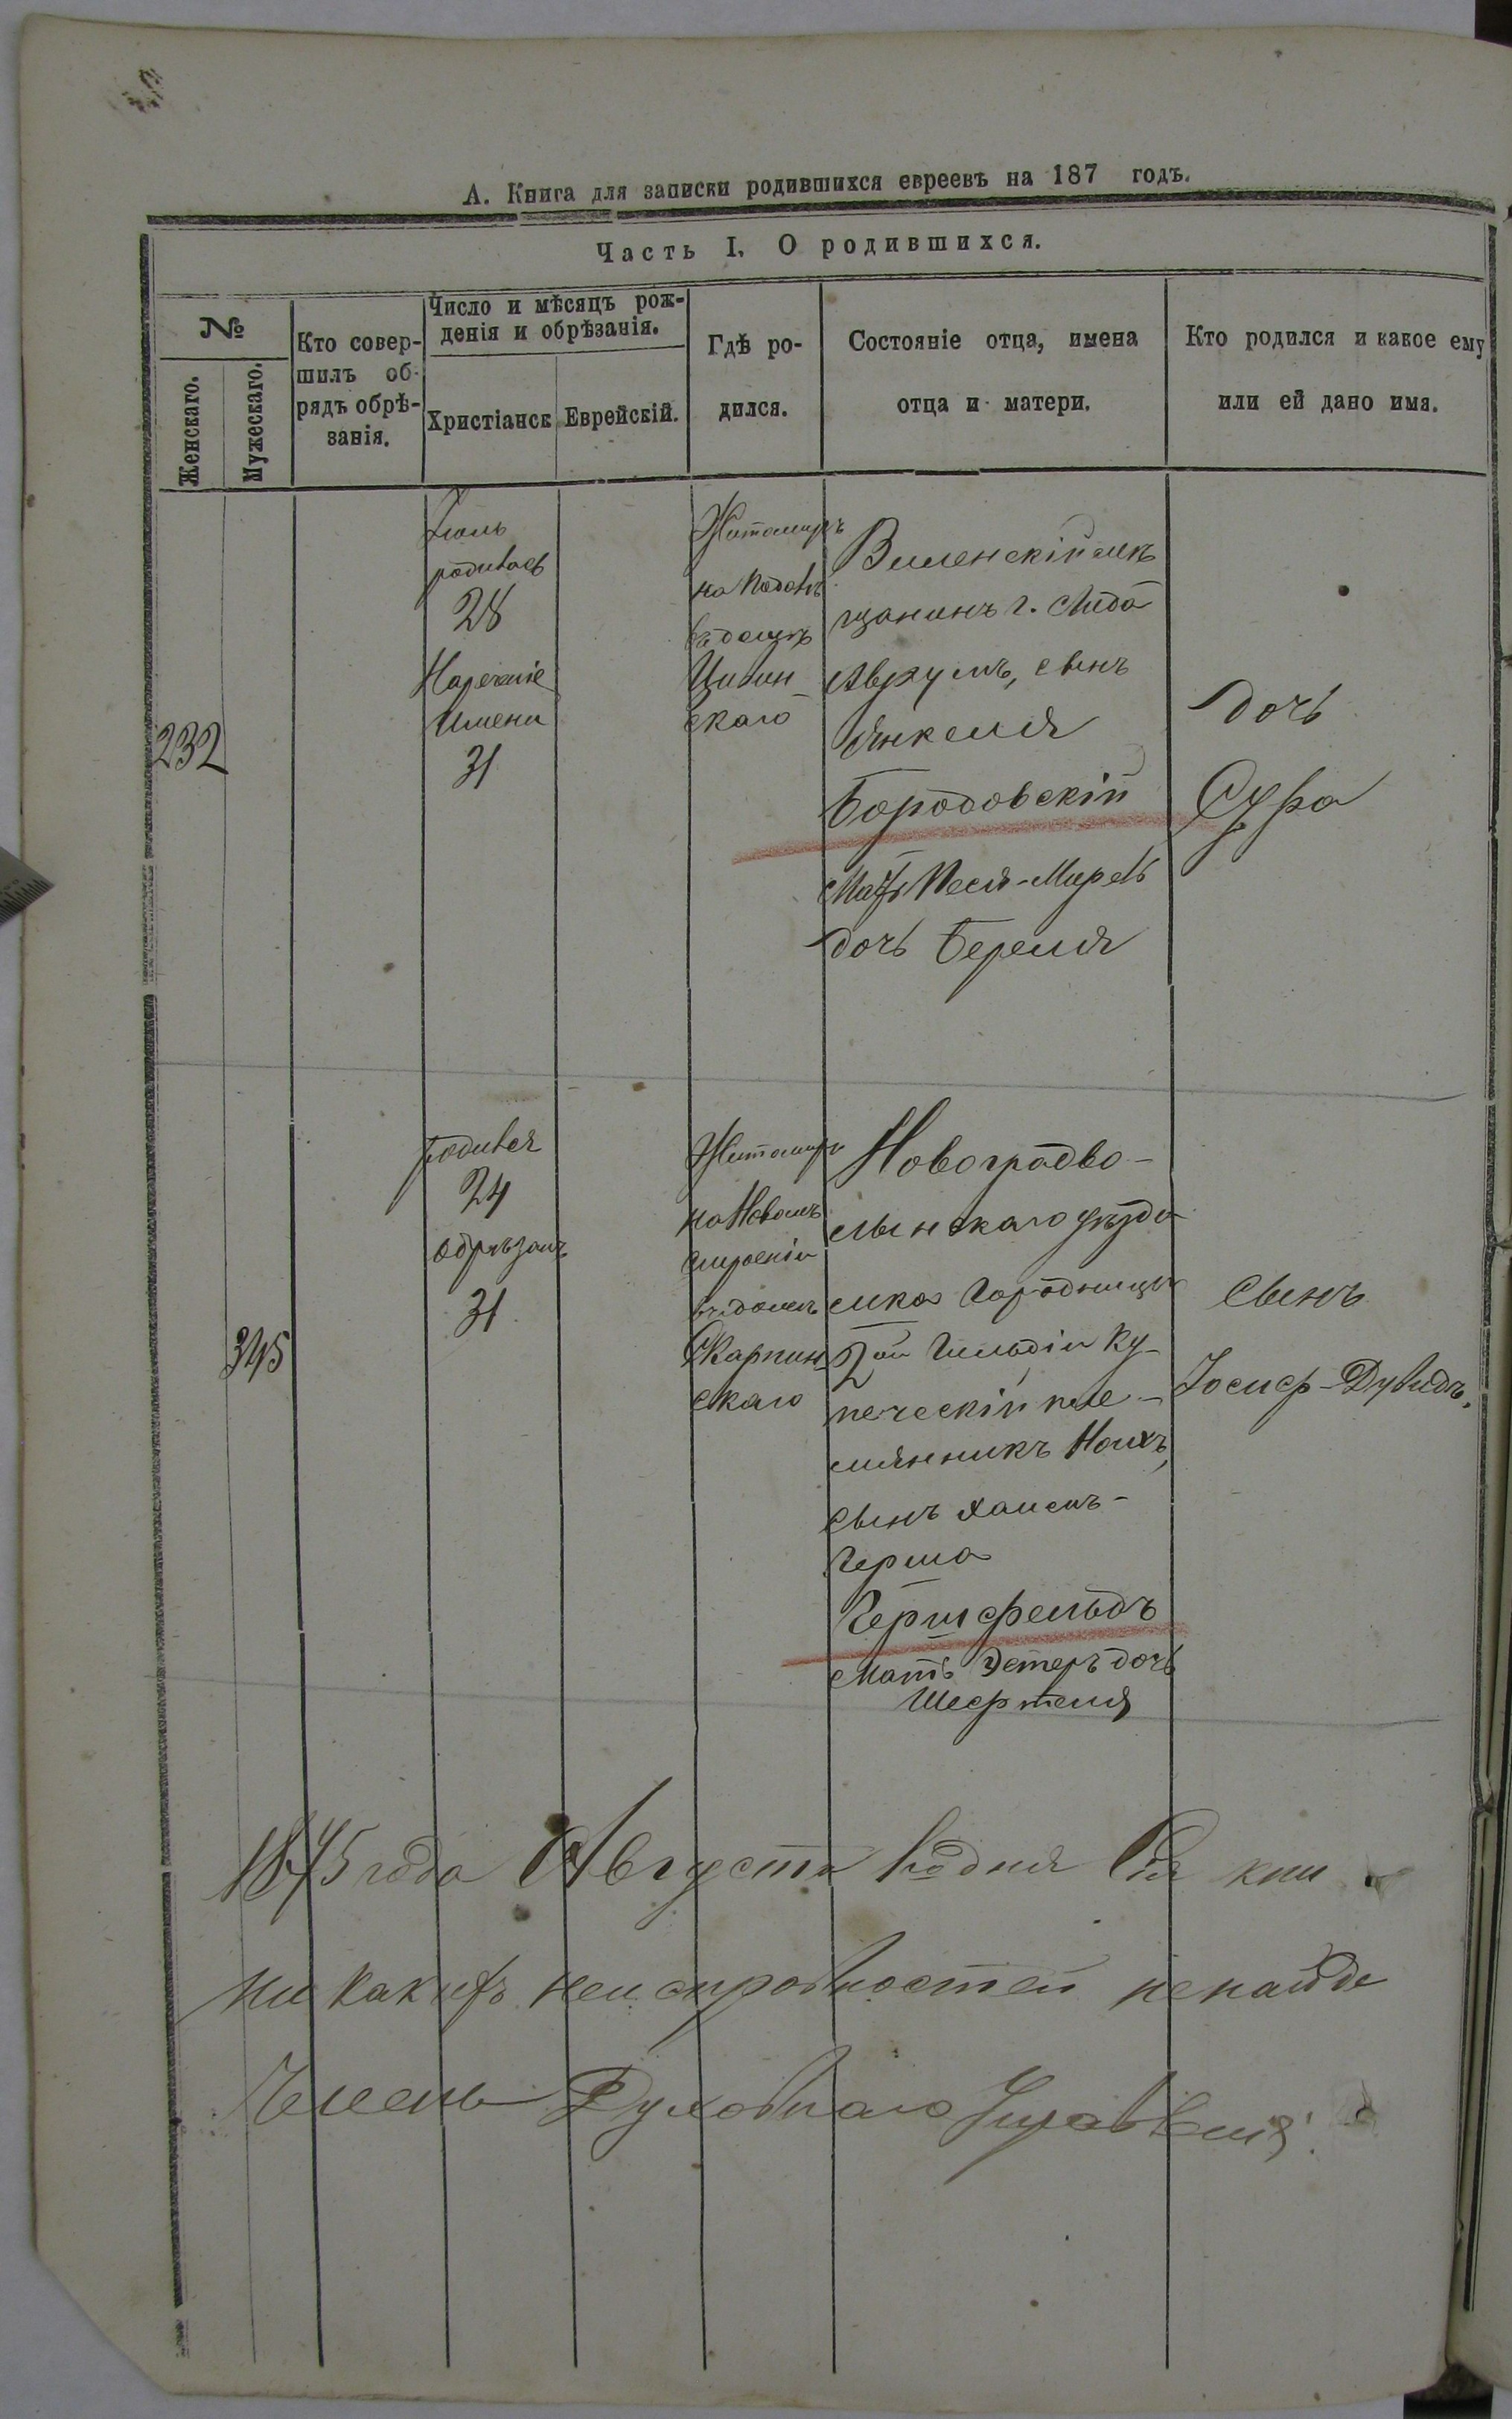 А. Книга для записки родившихся евреевъ на 187 годъ.
Часть I. О родившихся.
№
Женскаго.
Мужескаго.
Кто совер-
шилъ об-
рядъ обрѣ-
занія.
Число и мѣсяцъ рож-
денія и обрѣзанія.
Христіанск
Еврейскій.
Гдѣ ро-
дился.
Состояніе отца, имена
отца и матери.
Кто родился и какое ему
или ей дано имя.
232
Іюль
родилась
28
Нареченіе
имени
31
Житомиръ
на Подолѣ
въ домѣ
скаго
Виленскій мѣ
щанинъ г. Лида
Аврумъ, сынъ
Янкеля
Бородовскій
Мать Песя-Мирель
дочь Береля
дочь
Сура
345
родился
24
обрѣзанъ
31
Житомиръ
на Новомъ
строеніи
въ домѣ
Скарпин
скаго
Новоградво-
лынскаго уѣзда
мѣс Городницы
2ой Гильдіи ку-
печескій пле-
мянникъ Ноихъ,
сынъ Хаимъ-
Герша
Гершфельдъ
Мать Эстеръ дочь
Шефтеля
сынъ
Іосиф-Дувидъ.
1875 года Августа 1го дня Сія кни
ни какихъ неисправностей ненайде
Членъ Духовнаго Правленія